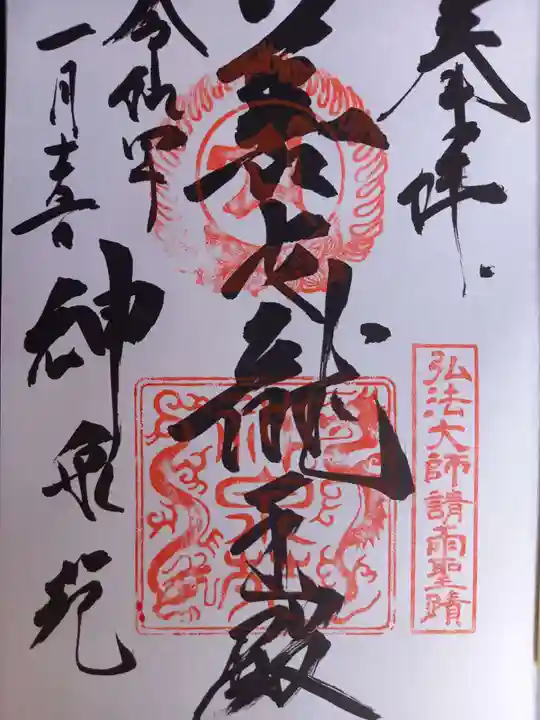 奉拝
弘法大師請雨聖蹟
善女龍王殿
令和四年
一月吉日
神泉苑